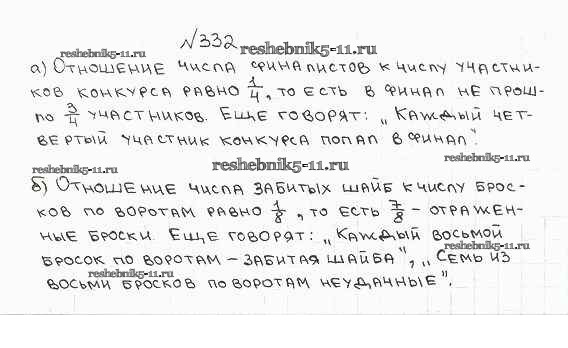 №332
reshebnik5-11.ru
reshebnik5-11.ru
а) Отношение числа финалистов к числу участни-
ков конкурса равно 1/4, то есть в финал не прош-
ло 3/4 участников. Еще говорят: „Каждый чет-
вертый участник конкурса попал в финал".
reshebnik5-11.ru
reshebnik5-11.ru
reshebnik5-11.ru
б) Отношение числа забитых шайб к числу брос-
ков по воротам равно 1/8, то есть 7/8 – отражен-
ные броски. Еще говорят: „Каждый восьмой
reshebnik5-11.ru
бросок по воротам – забитая шайба", „Семь из
reshebnik5-11.ru
восьми бросков по воротам неудачные".